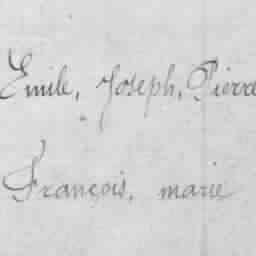 Emile, Joseph, Pierre
François, marie